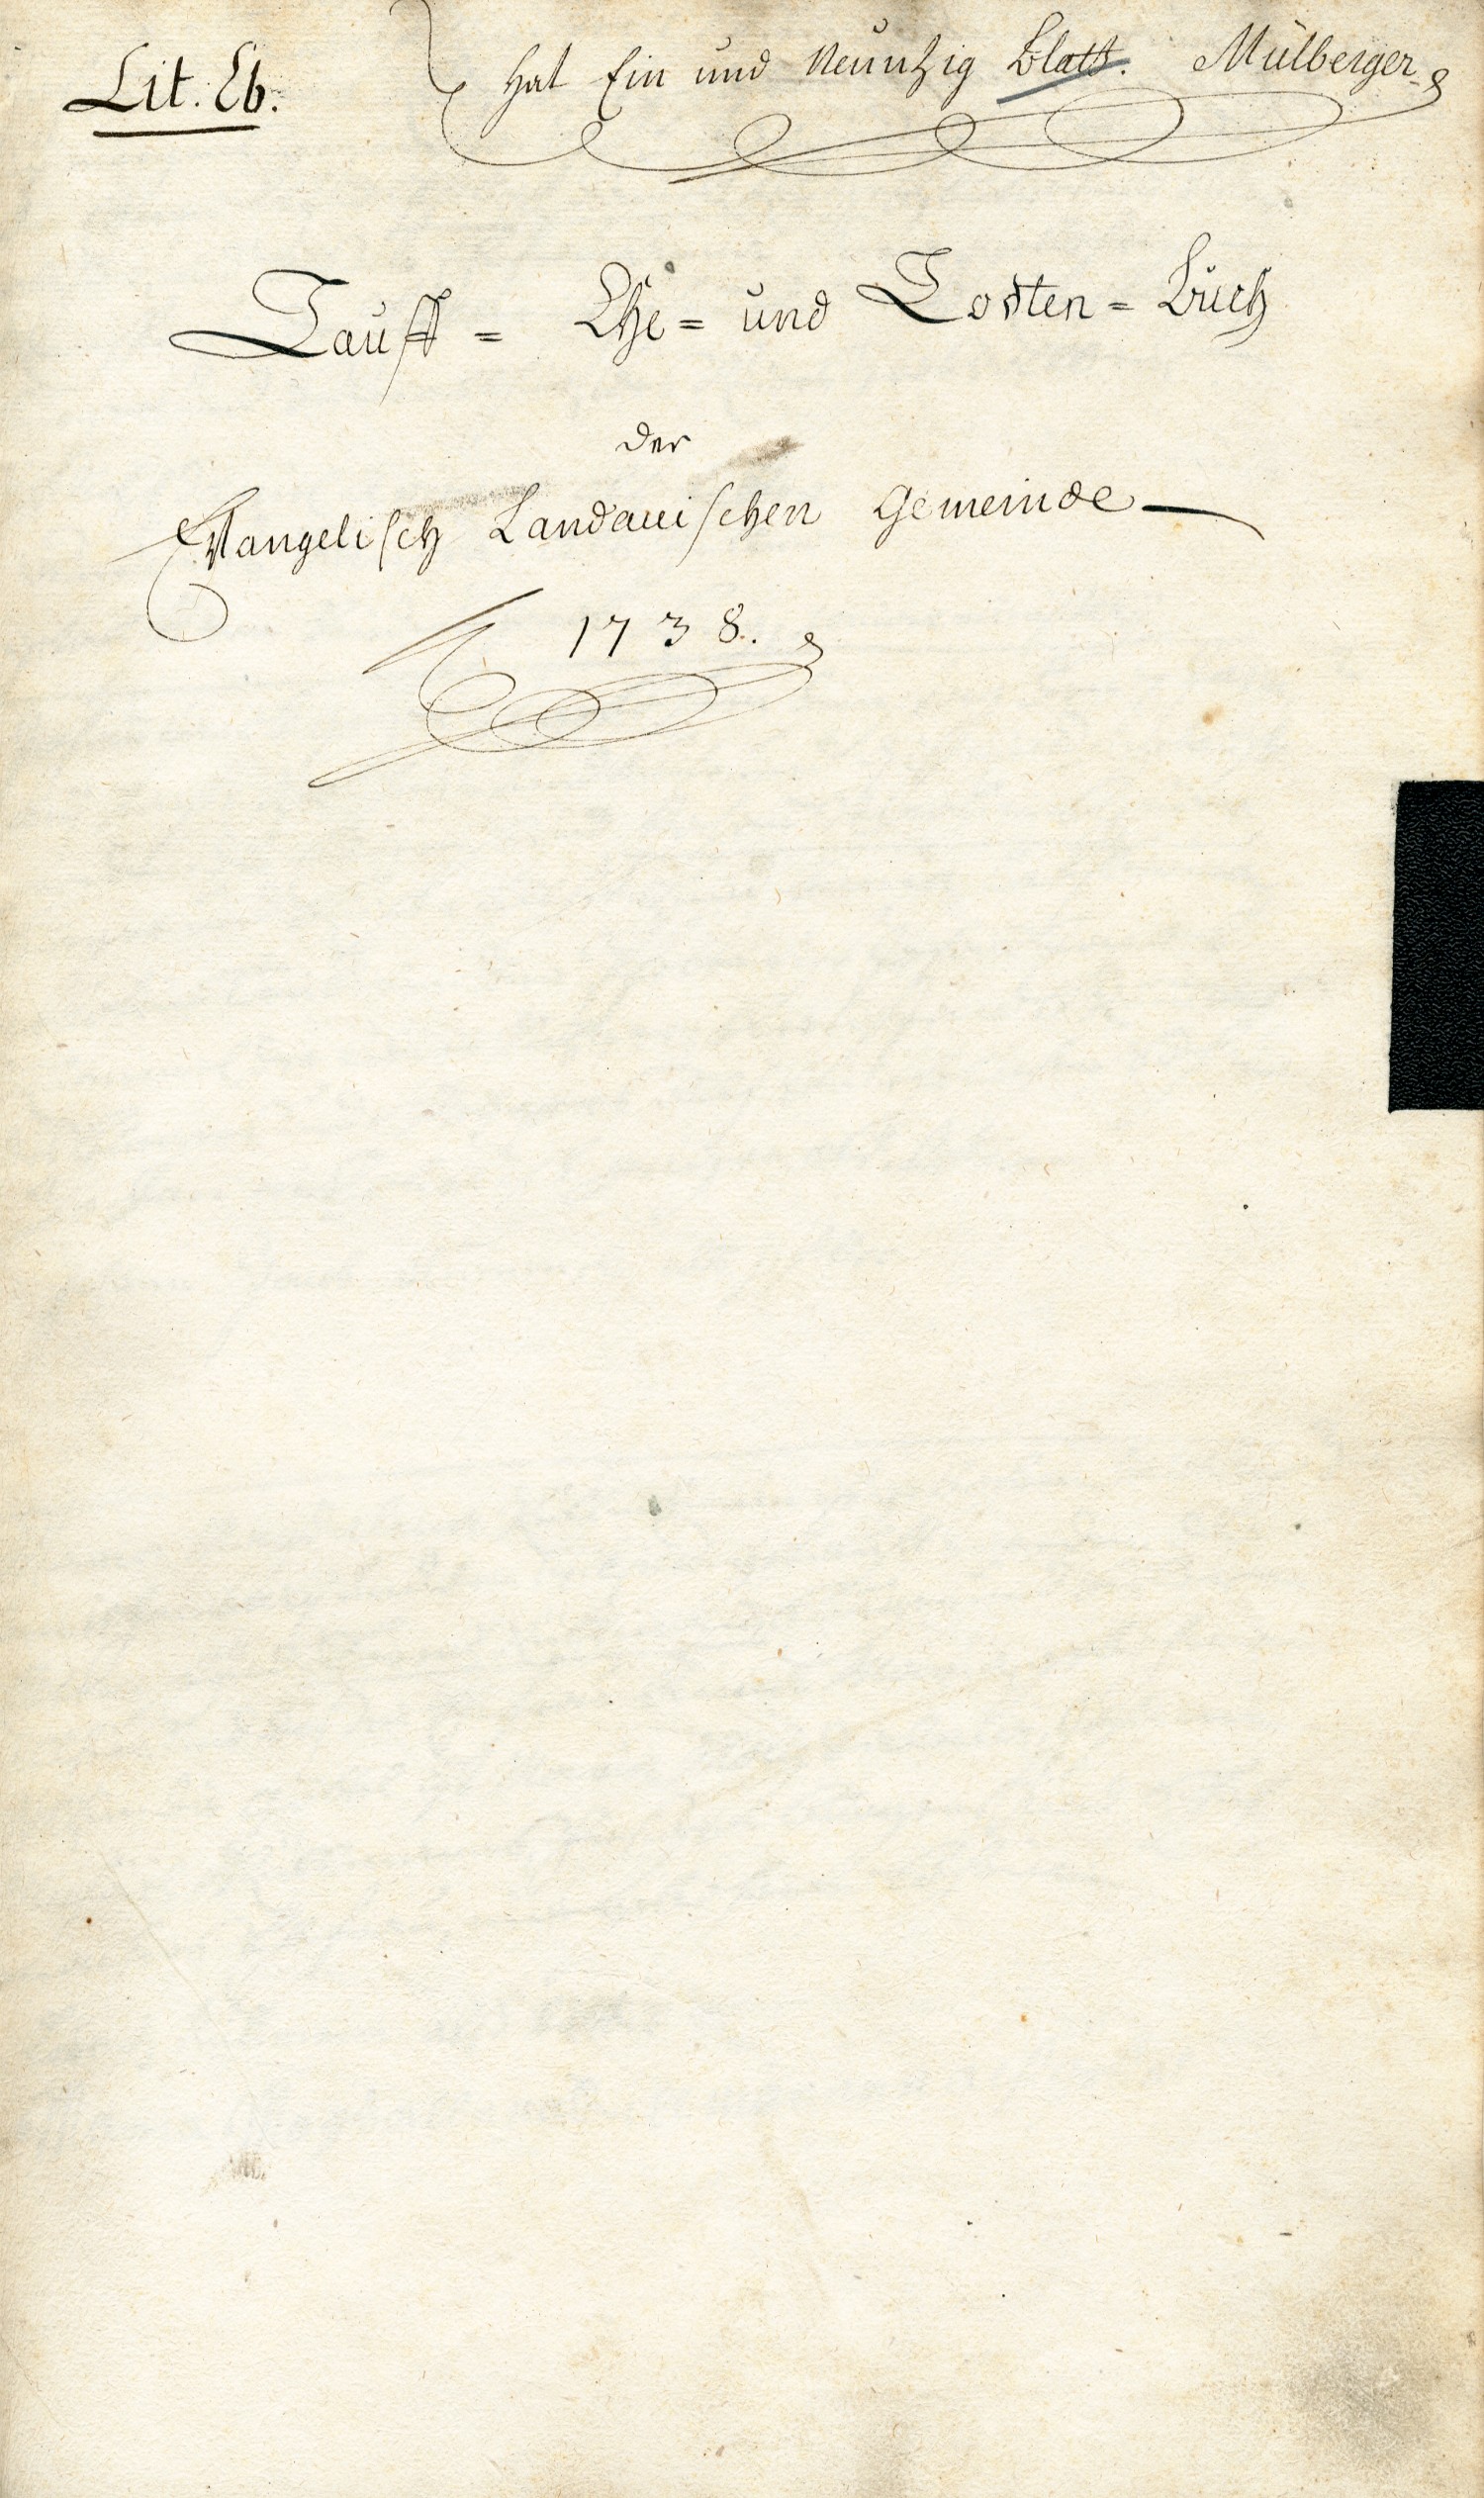 Lit. Eb.
hat Ein und Neuntzig Blatt. Mülberger
Tauff = Ehe = und Todten = Buch
der
Evangelisch Landauischen Gemeinde
1738.